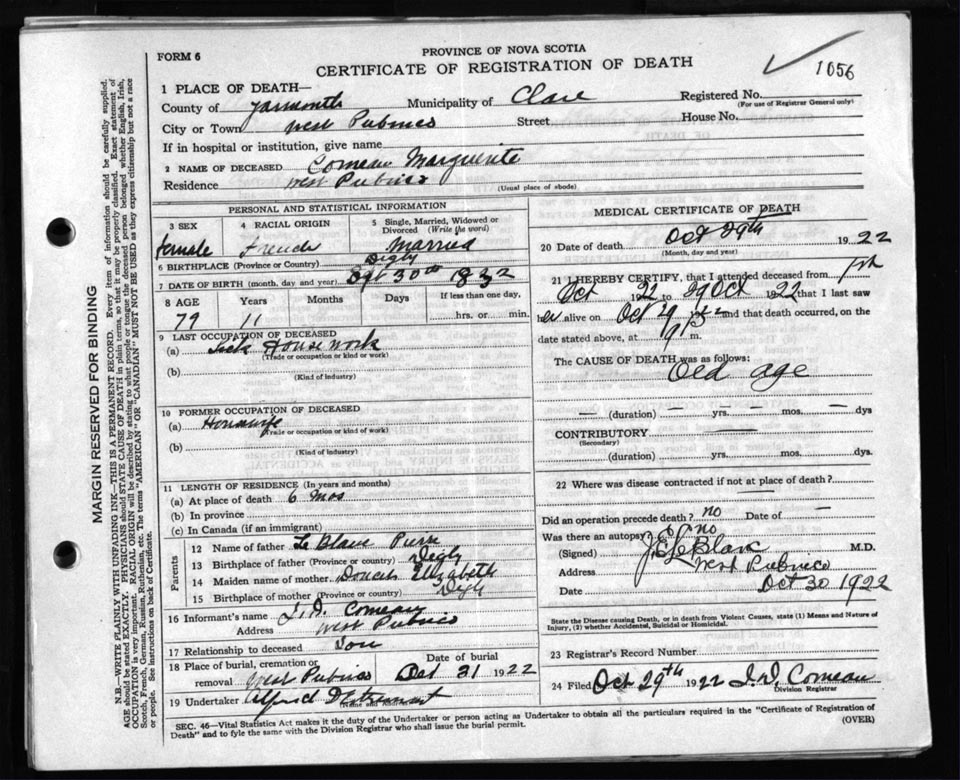 FORM 6
PROVINCE OF NOVA SCOTIA
CERTIFICATE OF REGISTRATION OF DEATH
1056
1 PLACE OF DEATH—
County of Yarmouth Municipality of Clare Registered No.
(For use of Registrar General only)
City or Town West Pubnico Street House No.
If in hospital or institution, give name
2 NAME OF DECEASED Comeau Marguerite
Residence West Pubnico
(Usual place of abode)
PERSONAL AND STATISTICAL INFORMATION
3 SEX
female
4 RACIAL ORIGIN
French
5 Single, Married, Widowed or Divorced (Write the word)
Married
6 BIRTHPLACE (Province or Country) Digby
7 DATE OF BIRTH (month, day and year) 30th 1832
8 AGE Years Months Days If less than one day,
79 11 hrs. or min.
9 LAST OCCUPATION OF DECEASED
(a) House work
(Trade or occupation or kind or work)
(b)
(Kind of industry)
10 FORMER OCCUPATION OF DECEASED
(a) Housewife
(Trade or occupation or kind of work)
(b)
(Kind of industry)
11 LENGTH OF RESIDENCE (In years and months)
(a) At place of death 6 Mos
(b) In province
(c) In Canada (if an immigrant)
Parents
12 Name of father Le Blanc Pierre
13 Birthplace of father (Province or country) Digby
14 Maiden name of mother Doucet Elizabeth
15 Birthplace of mother (Province or country) Digby
16 Informant's name J. D. Comeau
Address West Pubnico
17 Relationship to deceased Son
18 Place of burial, cremation or removal West Pubnico
Date of burial
Oct 31 1922
19 Undertaker Alfred D'Entremont
(Name and address)
MEDICAL CERTIFICATE OF DEATH
20 Date of death Oct 29th 1922
(Month, day and year)
21 I HEREBY CERTIFY, that I attended deceased from 1st
Oct 1922 to 29 Oct 1922 that I last saw
er alive on Oct 29 and that death occurred, on
date stated above, at m.
The CAUSE OF DEATH was as follows:
Old age
— (duration) — yrs. — mos. — dys
CONTRIBUTORY
(Secondary)
(duration) yrs. mos. dys.
22 Where was disease contracted if not at place of death?
—
Did an operation precede death? no Date of —
Was there an autopsy? no
(Signed) J.E. LeBlanc M.D.
Address West Pubnico
Date Oct 30 1922
State the Disease causing Death, or in death from Violent Causes, state (1) Means and Nature of Injury, (2) whether Accidental, Suicidal or Homicidal.
23 Registrar's Record Number
24 Filed Oct 29th 1922 J. D. Comeau
Division Registrar
SEC. 46—Vital Statistics Act makes it the duty of the Undertaker or person acting as Undertaker to obtain all the particulars required in the "Certificate of Registration of
Death" and to fyle the same with the Division Registrar who shall issue the burial permit. (OVER)
MARGIN RESERVED FOR BINDING
N.B.—WRITE PLAINLY WITH UNFADING INK—THIS IS A PERMANENT RECORD. Every item of information should be carefully supplied.
AGE should be stated EXACTLY. PHYSICIANS should STATE CAUSE OF DEATH in plain terms, so that it may be properly classified. Exact statement of
OCCUPATION is very important. RACIAL ORIGIN will be described by stating to what people or tongue the deceased person belonged whether English, Irish,
Scotch, French, German, Russian, Ruthenian, etc. The terms "AMERICAN" OR "CANADIAN" MUST NOT BE USED as they express citizenship but not a race
or people. See instructions on back of Certificate.